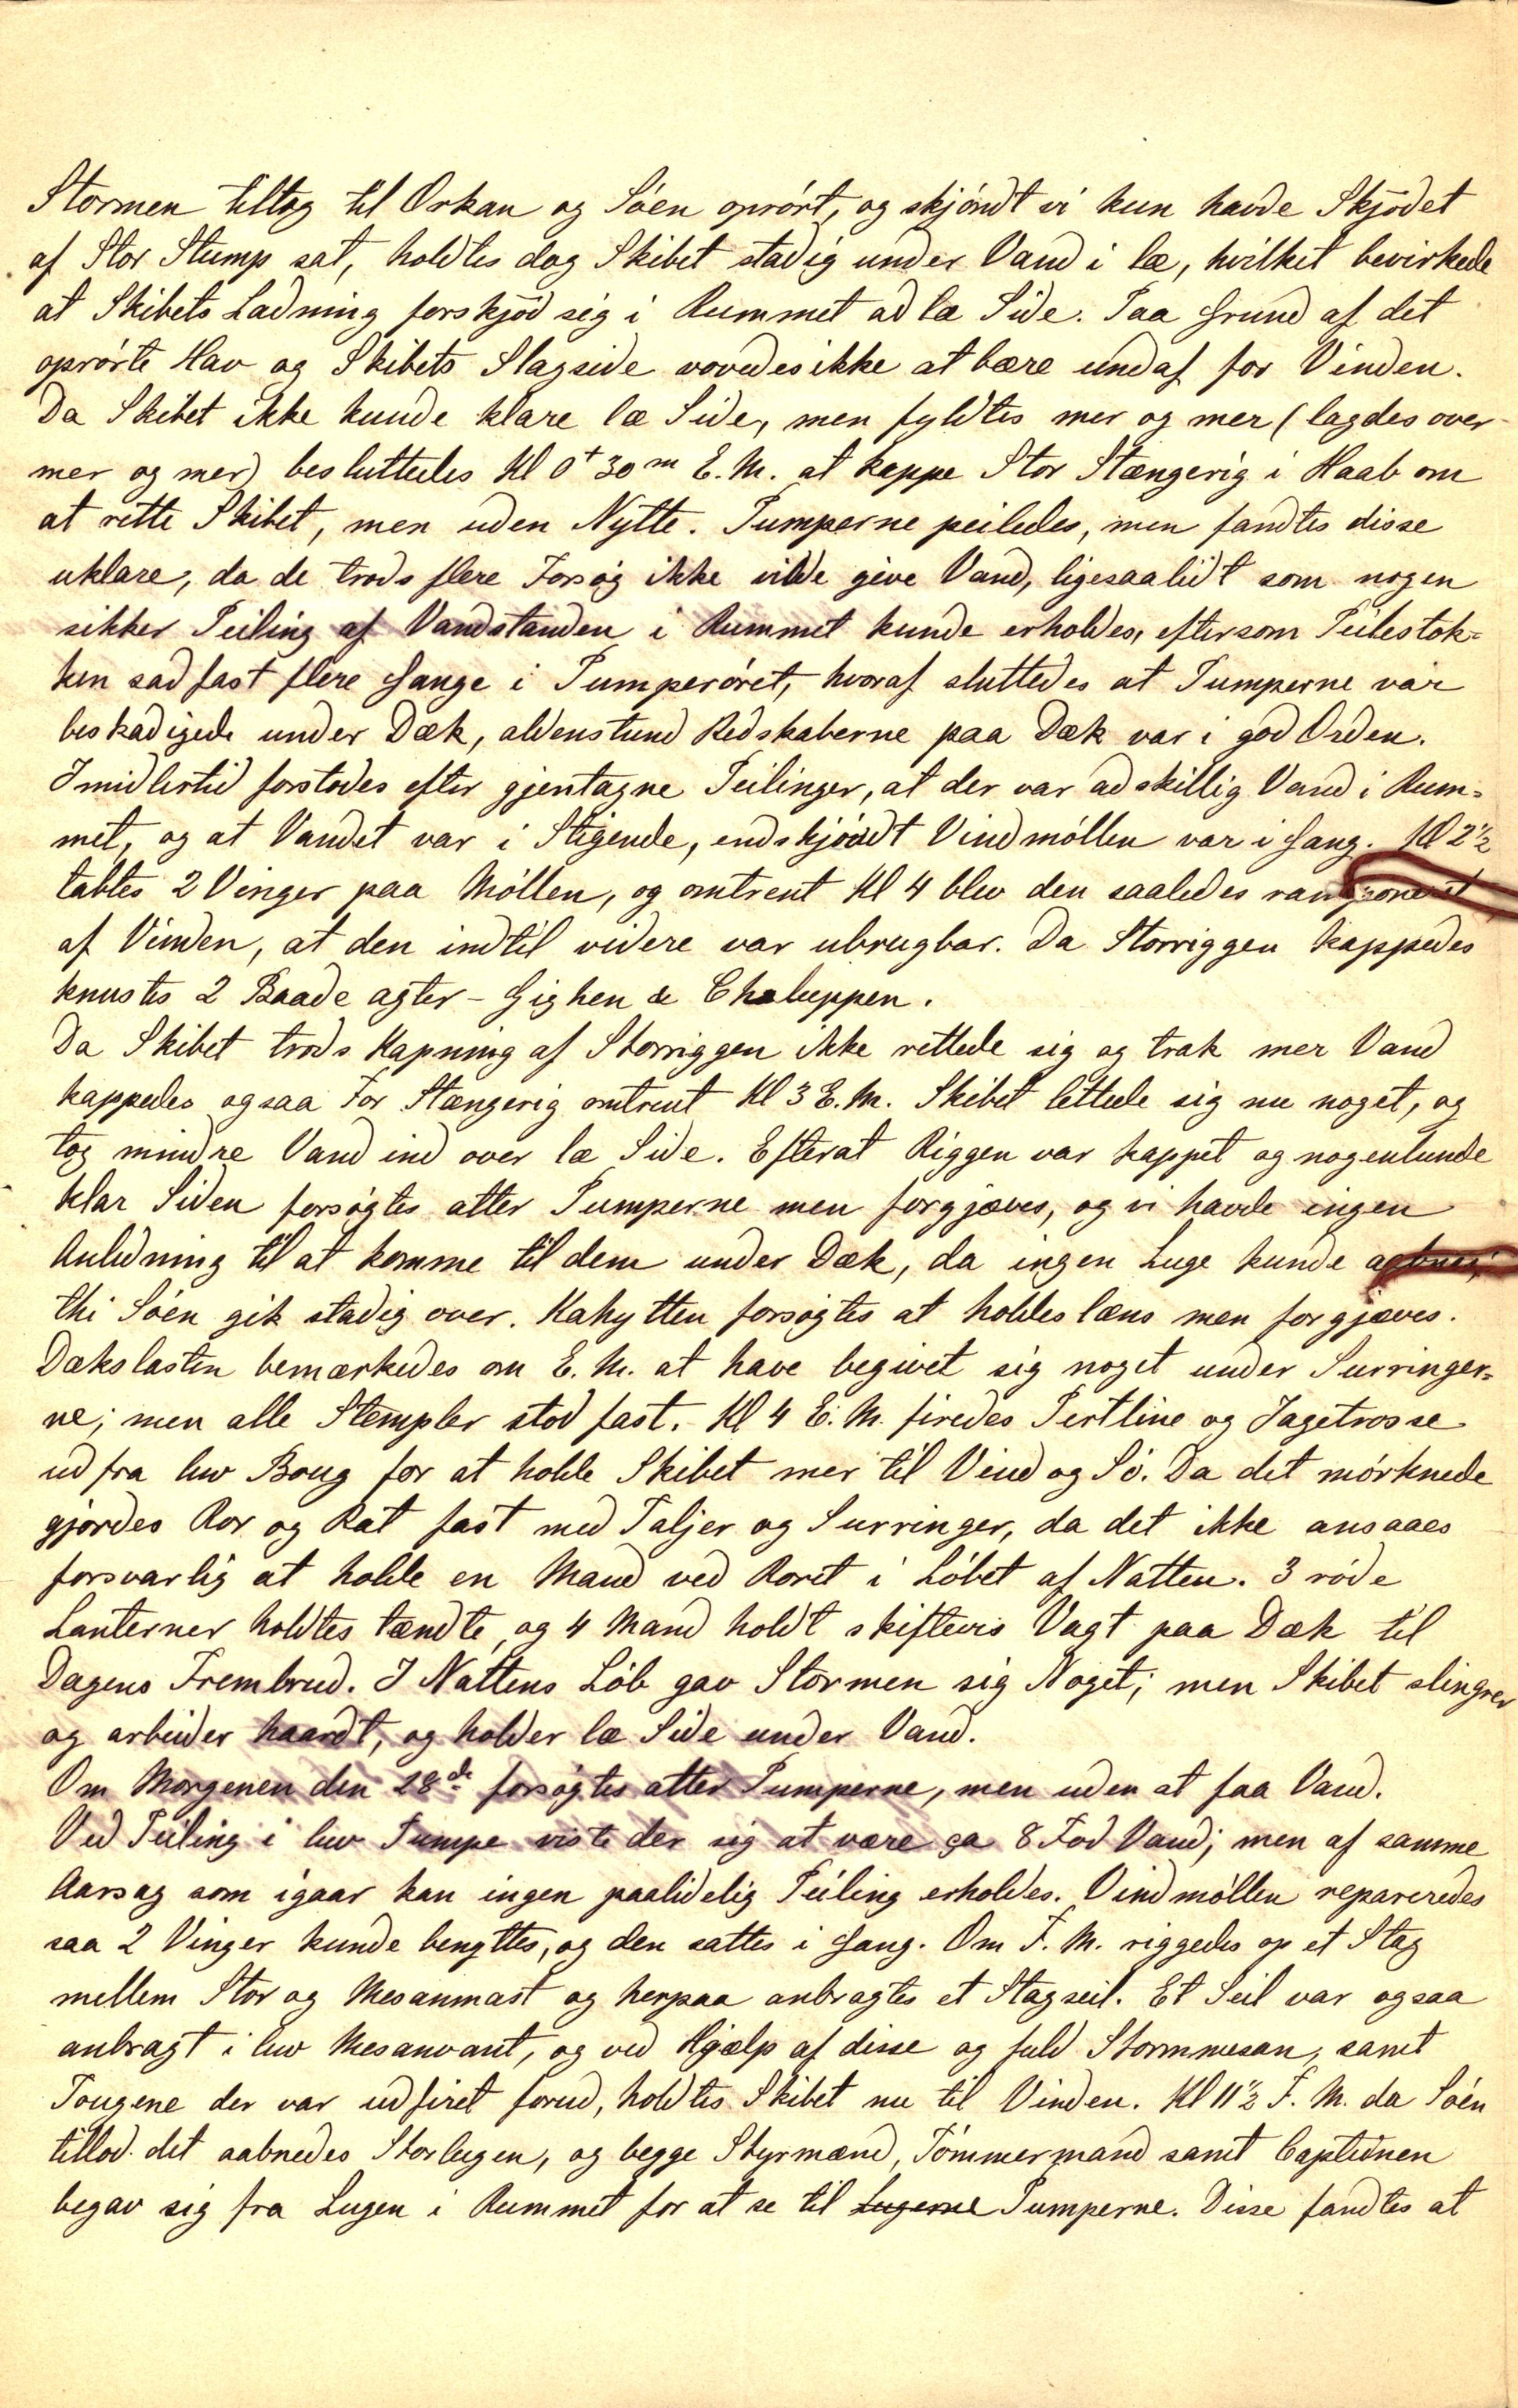 Stormen tiltog til Orkan og Søen oprørt, og skjøndt vi kun havde Skjødet
af Stor Stump sat, holdtes dog Skibet stadig under Vand i læ, hvilket bevirkede
at Skibets Ladning forskjød sig i Rummet ad læ Side. Paa Grund af det
oprørte Hav og Skibets Slagside vovedes ikke at bære undaf for Vinden.
Da Skibet ikke kunde klare læ Side, men fyldtes mer og mer (lagdes over
mer og mer) besluttedes Kl 0t 30m E.M. at kappe Stor Stængerig i Haab om
at rette Skibet, men uden Nytte. Pumperne peiledes, men fandtes disse
uklare, da de trods flere Forsøg ikke vilde give Vand, ligesaalidt som nogen
sikker Peiling af Vandstanden i Rummet kunde erholdes, eftersom Peilestok=
ken sad fast flere Gange i Pumperøret, hvoraf sluttedes at Pumperne var
beskadigede under Dæk, aldenstund Redskaberne paa Dæk var i god Orden.
Imidlertid forstodes efter gjentagne Peilinger, at der var adskillig Vand i Rum=
met, og at Vandet var i Stigende, endskjøndt Vindmøllen var i Gang. Kl 2½
tabtes 2 Vinger paa Møllen, og omtrent Kl 4 blev den saaledes ramponeret
af Vinden, at den indtil videre var ubrugbar. Da Storriggen kappedes
knustes 2 Baade agter - Gighen & Chaluppen.
Da Skibet trods Kapning af Storriggen ikke rettede sig og trak mer Vand
kappedes ogsaa For Stængerig omtrent Kl 3 E.M. Skibet lettede sig nu noget, og
tog mindre Vand ind over læ Side. Efterat Riggen var kappet og nogenlunde
klar Siden forsøgtes atter Pumperne men forgjæves, og vi havde ingen
Anledning til at komme til dem under Dæk, da ingen Luge kunde aabnes,
thi Søen gik stadig over. Kahytten forsøgtes at holdes læns men forgjæves.
Dækslasten bemærkedes om E.M. at have begivet sig noget under Surringer=
ne; men alle Stempler stod fast. Kl 4 E.M. firedes Pertline og Jagetrosse
ud fra luv Boug for at holde Skibet mer til Vind og Sø. Da det mørknede
gjordes Ror og Rat fast med Taljer og Surringer, da det ikke ansaaes
forsvarlig at holde en Mand ved Roret i Løbet af Natten. 3 røde
Lanterner holdtes tændte, og 4 Mand holdt skiftevis Vagt paa Dæk til
Dagens Frembrud. I Nattens Løb gav Stormen sig Noget; men Skibet slingrer
og arbeider haardt, og holder læ Side under Vand.
Om Morgenen den 28de forsøgtes atter Pumperne, men uden at faa Vand.
Ved Peiling i luv Pumpe viste der sig at være ca 8 Fod Vand; men af samme
Aarsag som igaar kan ingen paalidelig Peiling erholdes. Vindmøllen repareredes
saa 2 Vinger kunde benyttes, og den sattes i Gang. Om F.M. riggedes op et Stag
mellem Stor og Mesanmast og herpaa anbragtes et Stagseil. Et Seil var ogsaa
anbragt i luv Mesanvant, og ved Hjælp af disse og fuld Stormmesan, samt
Tougene der var udfiret forud, holdtes Skibet nu til Vinden. Kl 11½ F.M. da Søen
tillod det aabnedes Storlugen, og begge Styrmænd, Tømmermand samt Capteinen
begav sig fra Lugen i Rummet for at se til Lugerne Pumperne. Disse fandtes at